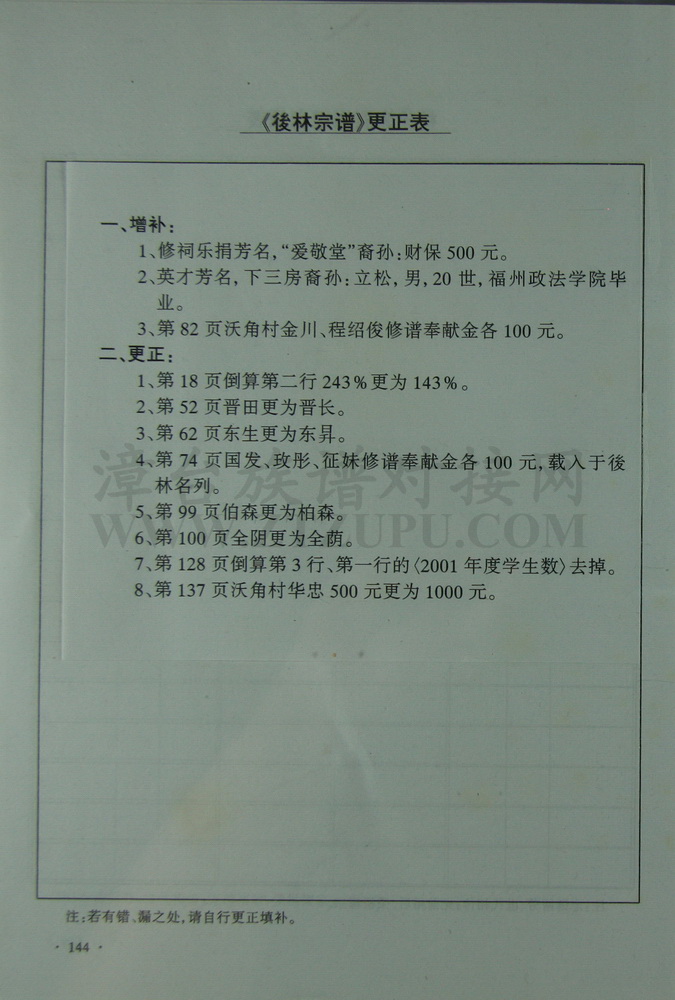 《後林宗谱》更正表
一、增补：
1、修祠乐捐芳名，“爱敬堂”裔孙：财保 500 元。
2、英才芳名，下三房裔孙：立松，男，20 世，福州政法学院毕
业。
3、第 82 页沃角村金川、程绍俊修谱奉献金各 100 元。
二、更正：
1、第 18 页倒算第二行 243％更为 143％。
2、第 52 页晋田更为晋长。
3、第 62 页东生更为东昇。
4、第 74 页国发、玫彤、征妹修谱奉献金各 100 元，载入于後
林名列。
5、第 99 页伯森更为柏森。
6、第 100 页全阴更为全荫。
7、第 128 页倒算第 3 行、第一行的〈2001 年度学生数〉去掉。
8、第 137 页沃角村华忠 500 元更为 1000 元。
漳台族谱对接网
注：若有错、漏之处，请自行更正填补。
· 144 ·